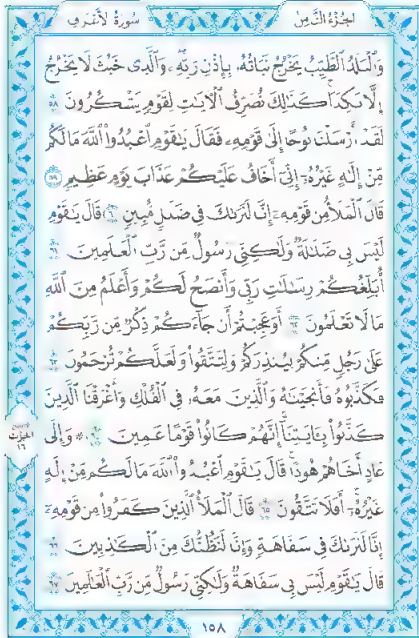 سُورَةُ الأَعْرَافِ
الجُزْءُ الثَّامِنُ
وَالْبَلَدُ الطَّيِّبُ يَخْرُجُ نَبَاتُهُ بِإِذْنِ رَبِّهِ وَالَّذِي خَبُثَ لَا يَخْرُجُ
إِلَّا نَكِدًا كَذَٰلِكَ نُصَرِّفُ الْآيَاتِ لِقَوْمٍ يَشْكُرُونَ ٥٨
لَقَدْ أَرْسَلْنَا نُوحًا إِلَىٰ قَوْمِهِ فَقَالَ يَٰقَوْمِ اعْبُدُوا اللَّهَ مَا لَكُم
مِّنْ إِلَٰهٍ غَيْرُهُ إِنِّي أَخَافُ عَلَيْكُمْ عَذَابَ يَوْمٍ عَظِيمٍ ٥٩
قَالَ الْمَلَأُ مِن قَوْمِهِ إِنَّا لَنَرَىٰكَ فِي ضَلَٰلٍ مُّبِينٍ ٦٠ قَالَ يَٰقَوْمِ
لَيْسَ بِي ضَلَٰلَةٌ وَلَٰكِنِّي رَسُولٌ مِّن رَّبِّ الْعَٰلَمِينَ ٦١
أُبَلِّغُكُمْ رِسَٰلَٰتِ رَبِّي وَأَنصَحُ لَكُمْ وَأَعْلَمُ مِنَ اللَّهِ
مَا لَا تَعْلَمُونَ ٦٢ أَوَعَجِبْتُمْ أَن جَآءَكُمْ ذِكْرٌ مِّن رَّبِّكُمْ
عَلَىٰ رَجُلٍ مِّنكُمْ لِيُنذِرَكُمْ وَلِتَتَّقُوا وَلَعَلَّكُمْ تُرْحَمُونَ ٦٣
فَكَذَّبُوهُ فَأَنجَيْنَٰهُ وَالَّذِينَ مَعَهُ فِي الْفُلْكِ وَأَغْرَقْنَا الَّذِينَ
كَذَّبُوا بِـَٔايَٰتِنَا إِنَّهُمْ كَانُوا قَوْمًا عَمِينَ ٦٤ ۞ وَإِلَىٰ
عَادٍ أَخَاهُمْ هُودًا قَالَ يَٰقَوْمِ اعْبُدُوا اللَّهَ مَا لَكُم مِّنْ إِلَٰهٍ
غَيْرُهُ أَفَلَا تَتَّقُونَ ٦٥ قَالَ الْمَلَأُ الَّذِينَ كَفَرُوا مِن قَوْمِهِ
إِنَّا لَنَرَىٰكَ فِي سَفَاهَةٍ وَإِنَّا لَنَظُنُّكَ مِنَ الْكَٰذِبِينَ ٦٦
قَالَ يَٰقَوْمِ لَيْسَ بِي سَفَاهَةٌ وَلَٰكِنِّي رَسُولٌ مِّن رَّبِّ الْعَٰلَمِينَ ٦٧
الحزب
١٦
١٥٨